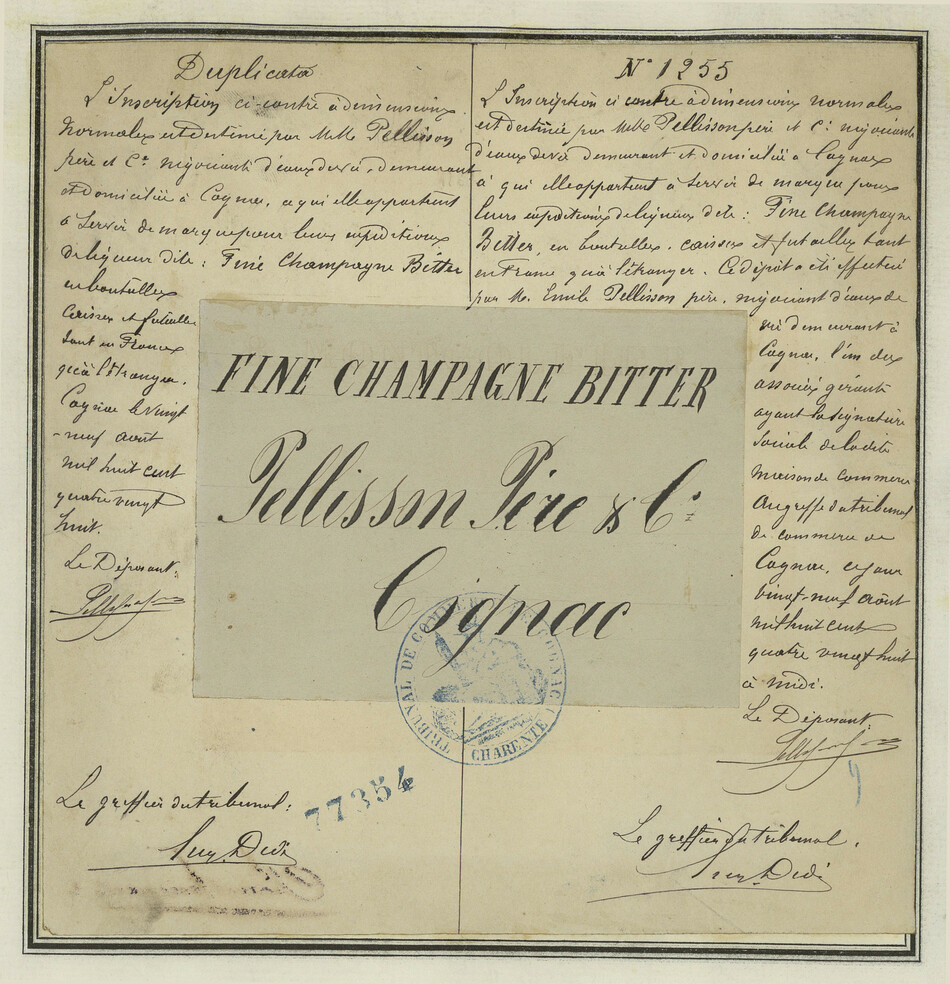 Duplicata
L'Inscription ci-contre à dimensions
normales est destinée par MMrs Pellisson
père et Cie négociants d'eaux de vie, demeurant
et domiciliés à Cognac, à qui elle appartient
à servir de marque pour leurs expéditions
de liqueur dite : Fine Champagne Bitter
en bouteilles
Caisses et futailles
tant en France
qu'à l'étranger.
Cognac le vingt
-neuf août
mil huit cent
quatre vingt
huit.
Le Déposant:
N° 1255
L'Inscription ci contre à dimensions normales
est destinée par MMrs Pellisson père et Cie négociants
d'eaux de vie demeurant et domiciliés à Cognac
à qui elle appartient à servir de marque pour
leurs expéditions de liqueur dite : Fine Champagne
Bitter, en bouteilles, caisses et futailles tant
en France qu'à l'étranger. Ce dépôt a été effectué
par M. Emile Pellisson père, négociant d'eaux de
vie demeurant à
Cognac, l'un des
associés gérants
ayant la signature
sociale de la dite
maison de commerce
au greffe du tribunal
de commerce de
Cognac, ce jour
vingt-neuf août
mil huit cent
quatre vingt huit
à midi.
Le Déposant:
FINE CHAMPAGNE BITTER
Pellisson Père & Cie
Cognac
TRIBUNAL DE COMMERCE DE COGNAC
CHARENTE
77354
Le greffier du tribunal:
Le greffier du tribunal.